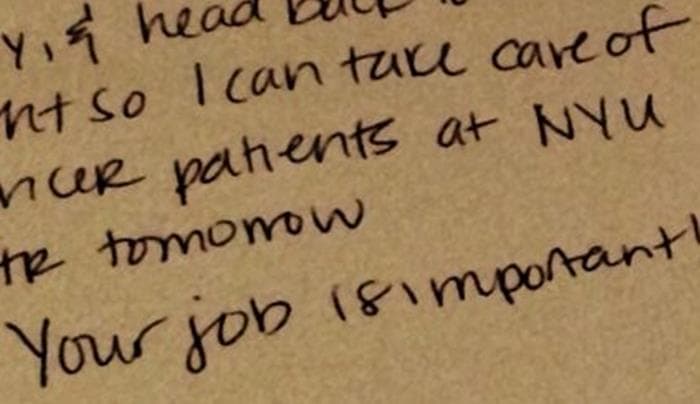 y, & head back
nt so I can take care of
ncer patients at NYU
tR tomorrow
Your job is important!